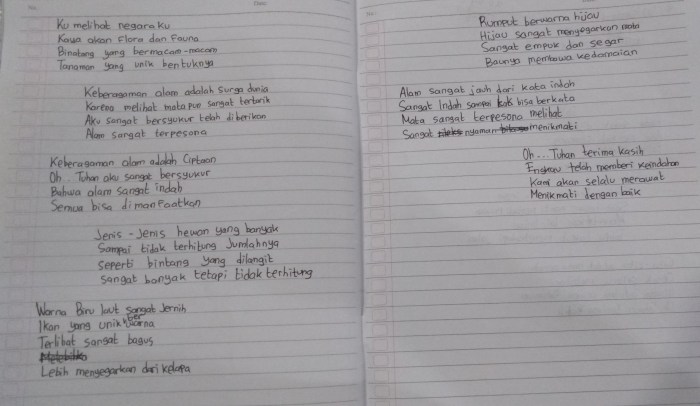 Ku melihat negara ku
Kaya akan Flora dan Fauna
Binatang yang bermacam-macam
Tanaman yang unik bentuknya
Keberagaman alam adalah surga dunia
Karena melihat mata pun sangat tertarik
Aku sangat bersyukur telah diberikan
Alam sangat terpesona
Keberagaman alam adalah Ciptaan
Oh... Tuhan aku sangat bersyukur
Bahwa alam sangat indah
Semua bisa dimanfaatkan
Jenis-Jenis hewan yang banyak
Sampai tidak terhitung Jumlahnya
Seperti bintang yang dilangit
Sangat banyak tetapi tidak terhitung
Warna Biru laut sangat Jernih
Ikan yang unik berwarna
Terlihat sangat bagus
Lebih menyegarkan dari kelapa
Rumput berwarna hijau
Hijau sangat menyegarkan mata
Sangat empuk dan segar
Baunya membawa kedamaian
Alam sangat jauh dari kata indah
Sangat Indah sampai tak bisa berkata
Mata sangat terpesona melihat
Sangat nyaman menikmati
Oh... Tuhan terima kasih
Engkau telah memberi keindahan
Kami akan selalu merawat
Menikmati dengan baik